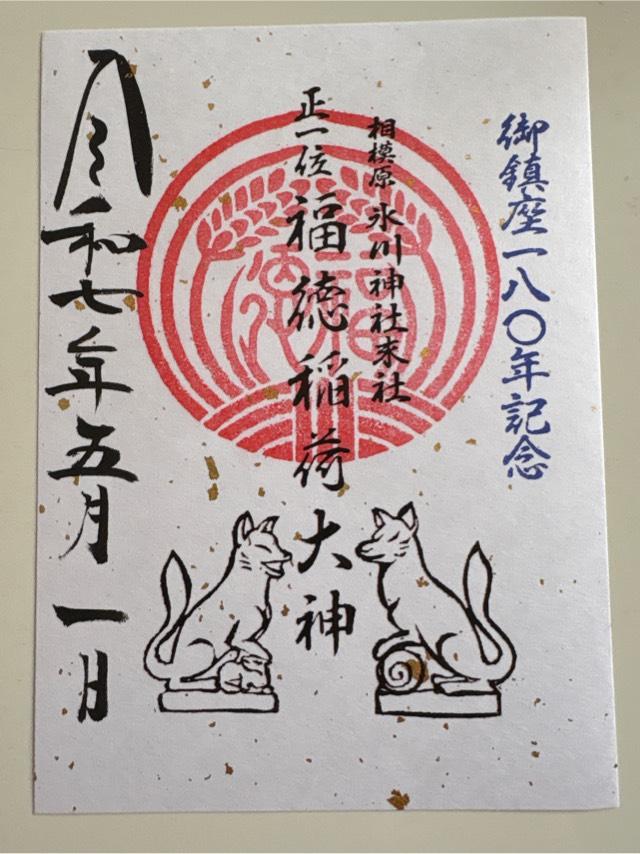 御鎮座一八〇年記念
相模原 氷川神社末社
正一位 福徳稲荷大神
令和七年五月一日